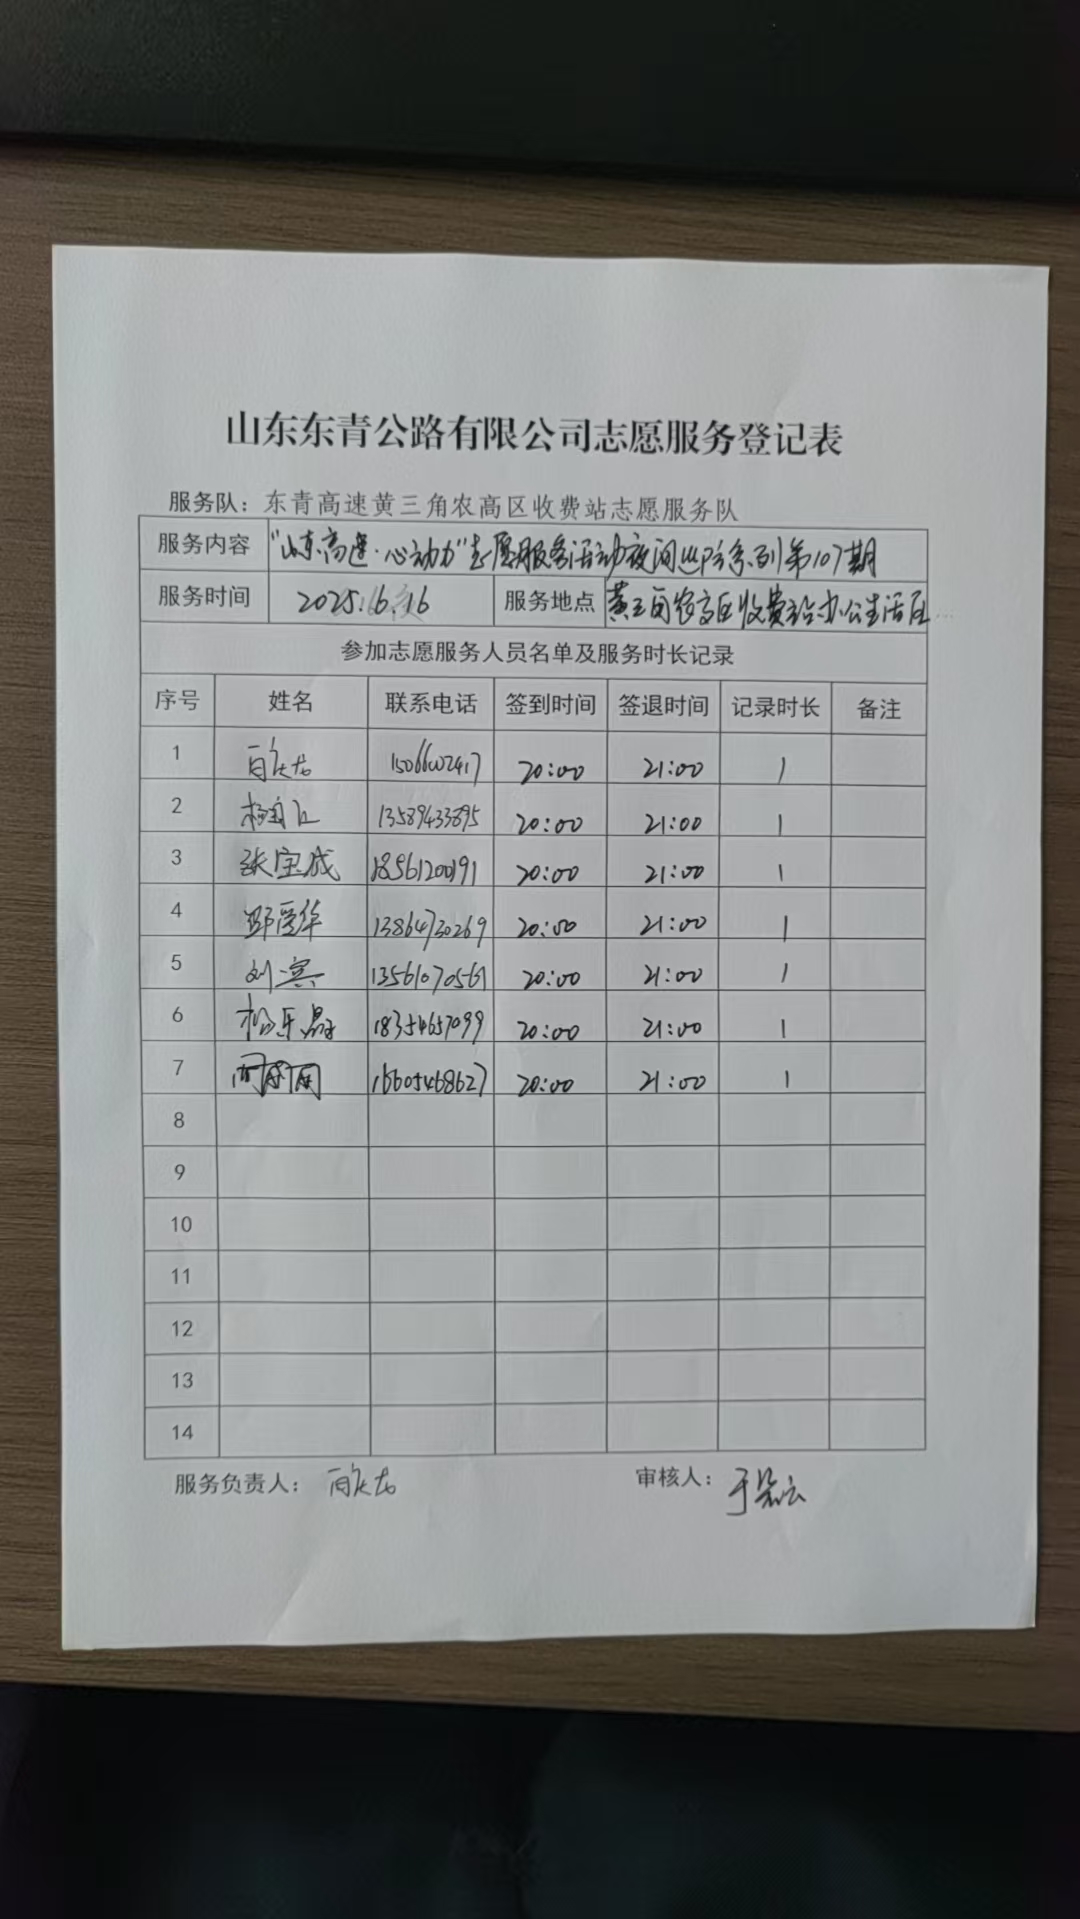 山东东青公路有限公司志愿服务登记表
服务队：东青高速黄三角农高区收费站志愿服务队
服务内容 “山东高速·心动力”志愿服务活动夜间巡防系列第107期
服务时间 2025.6.16 服务地点 黄三角农高区收费站办公生活区
参加志愿服务人员名单及服务时长记录
序号 姓名 联系电话 签到时间 签退时间 记录时长 备注
1 20:00 21:00 1
2 13589433895 20:00 21:00 1
3 张宝成 18561200191 20:00 21:00 1
4 13864730269 20:00 21:00 1
5 刘滨 13561070561 20:00 21:00 1
6 18354657099 20:00 21:00 1
7 15605468627 20:00 21:00 1
8
9
10
11
12
13
14
服务负责人： 审核人：于